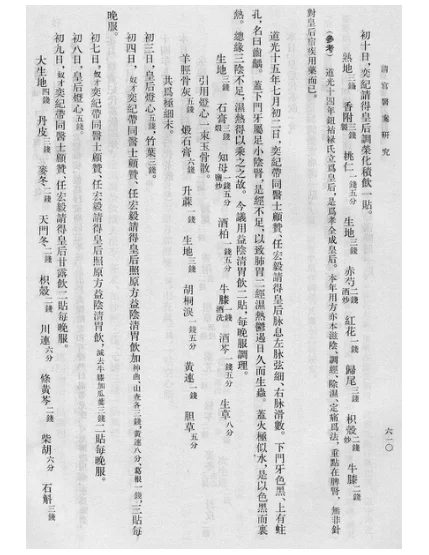 清宫医案研究
六一〇
初十日，奕紀請得皇后調榮化積飲一貼。
熟地三錢 香附三錢製 桃仁二錢五分 生地三錢 赤芍二錢酒炒 紅花一錢 歸尾三錢 枳殼二錢炒 牛膝二錢
(參考) 道光十四年鈕祜祿氏立爲皇后，是爲孝全成皇后，本年用方亦本滋陰、調經、除濕、定痛爲法，重點在脾腎，無非針
對皇后宿疾用藥而已。
道光十五年七月初二日，奕紀帶同醫士顧贊、任宏毅請得皇后脉息左脉弦細、右脉滑數。下門牙色黑、上有蛀
孔，名曰齒䘌。蓋下門牙屬足少陰腎，是經不足，以致肺胃二經濕熱鬱遏日久而生蟲。蓋火極似水，是以色黑而裏
熱。總緣三陰不足，濕熱得以乘之之故。今議用益陰清胃飲二貼，每晚服調理。
生地三錢 石膏三錢煅 知母一錢五分鹽炒 酒柏一錢五分 牛膝一錢酒洗 酒芩一錢五分 生草八分
引用燈心一束玉骨散。
羊脛骨灰五錢 煅石膏六錢 升麻一錢 生地三錢 胡桐淚一錢五分 黄連一錢 胆草五分
共爲極細末。
初三日，皇后燈心五錢，竹葉三錢。
初四日，奴才奕紀帶同醫士顧贊、任宏毅請得皇后照原方益陰清胃飲加神曲、山查各三錢，黄連八分，葛根一錢，三貼每
晚服。
初七日，奴才奕紀帶同醫士顧贊、任宏毅請得皇后照原方益陰清胃飲，減去牛膝加瓜蔞三錢二貼每晚服。
初八日，皇后燈心五錢。
初九日，奴才奕紀帶同醫士顧贊、任宏毅請得皇后甘露飲二貼每晚服。
大生地四錢 丹皮二錢 麥冬三錢 天門冬二錢 枳殼二錢 川連六分 條黄芩二錢 柴胡六分 石斛三錢